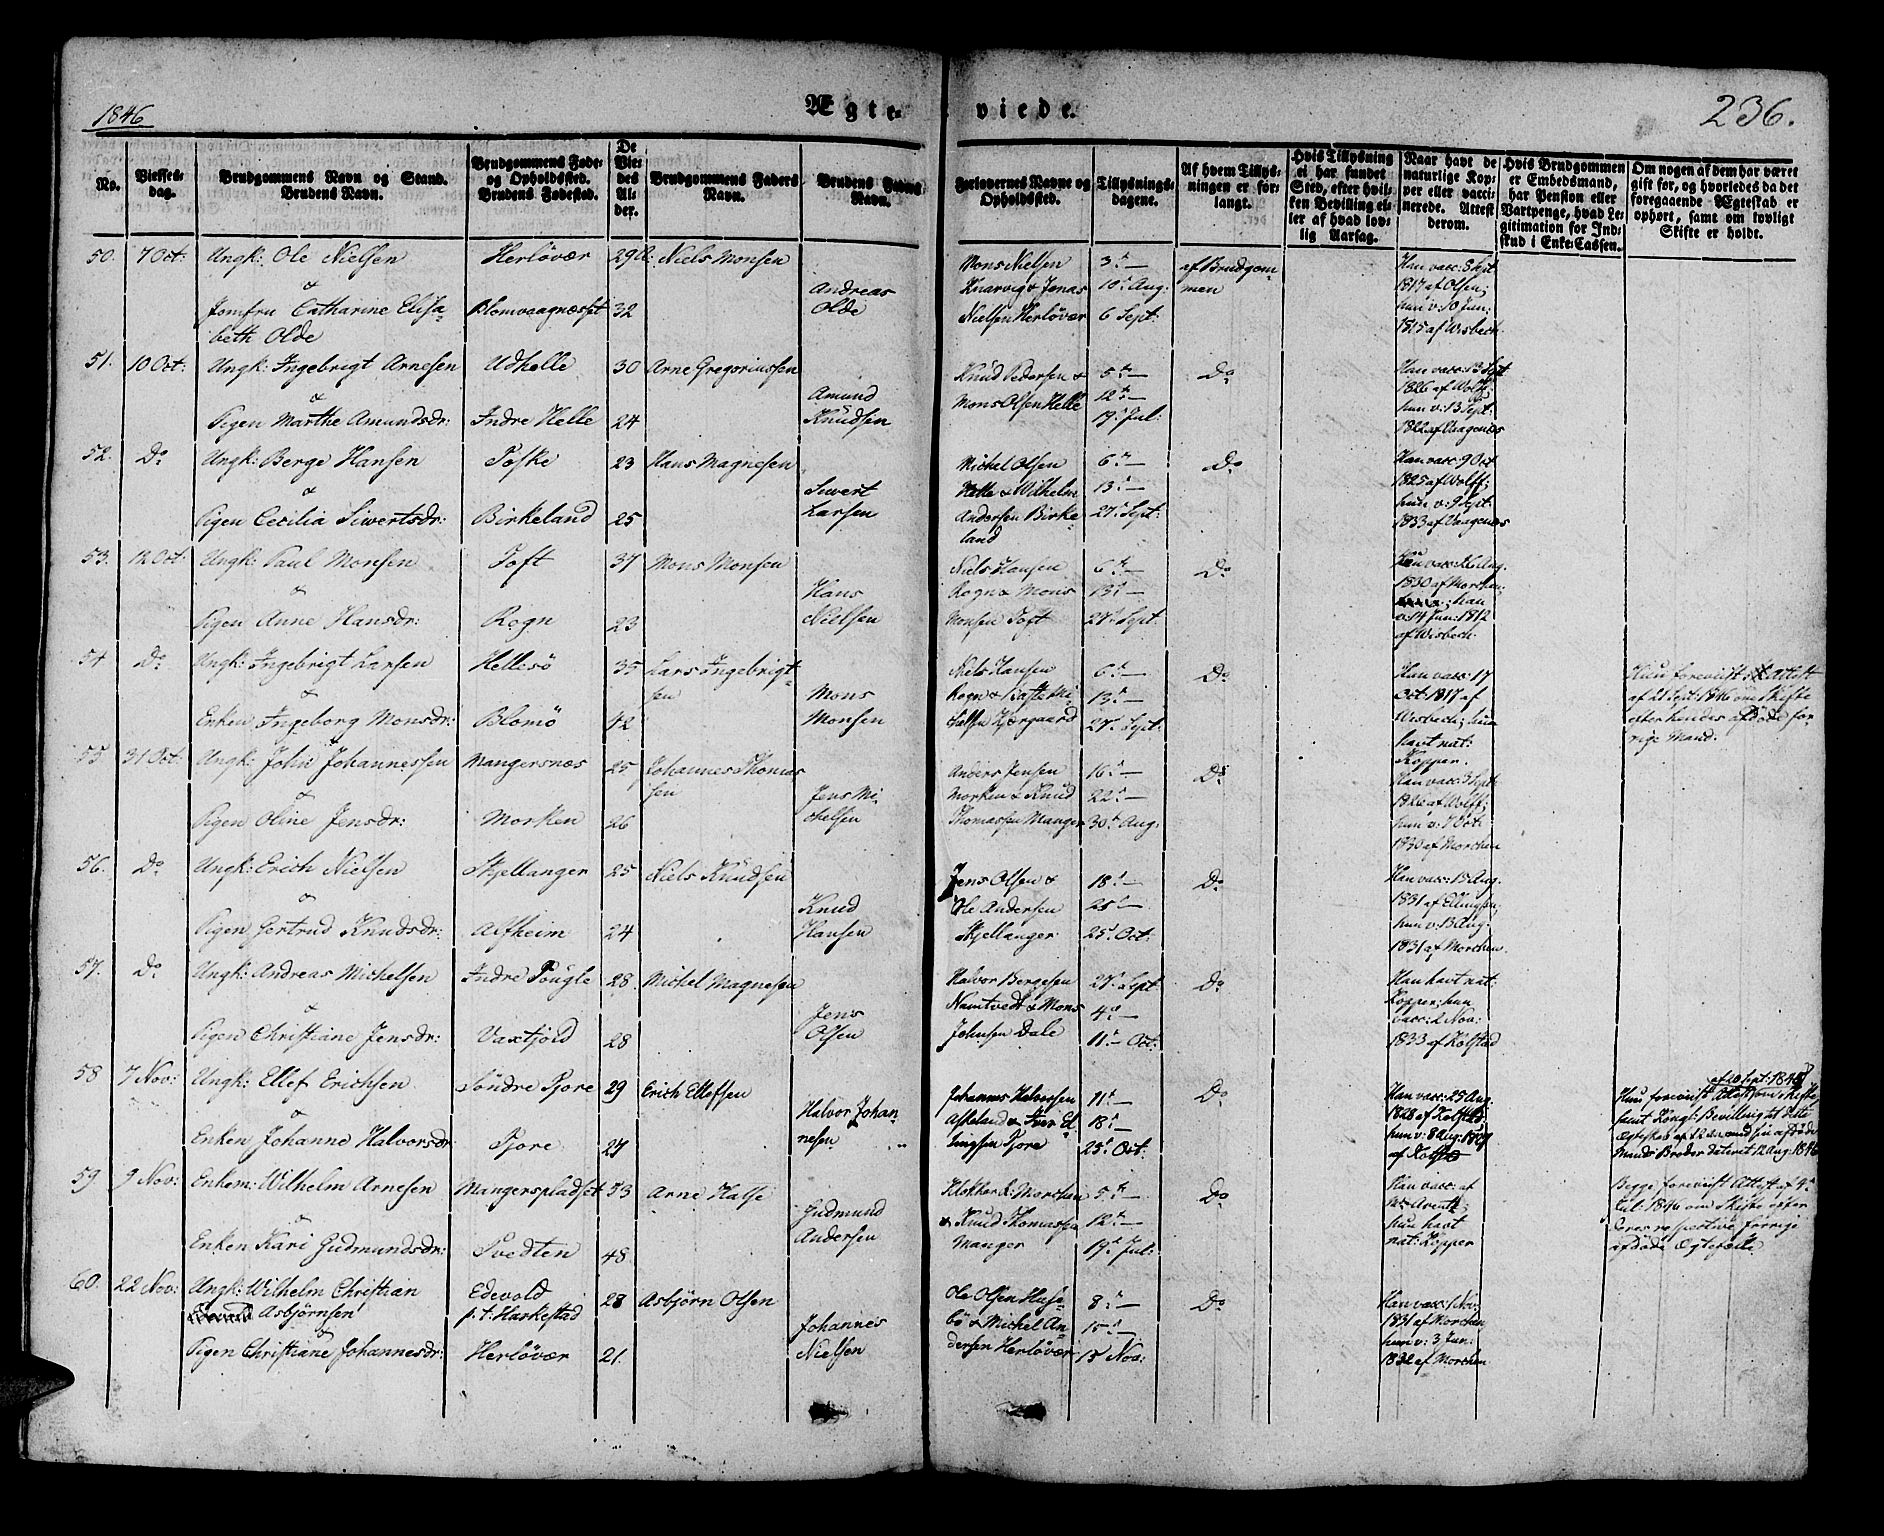 1846
Ægte-viede.
236.
No.
Vielses-dag.
Brudgommens Navn og Stand.
Brudens Navn.
Brudgommens Føde- og Opholdssted.
Brudens Fødested.
De Viedes Alder.
Brudgommens Faders Navn.
Brudens Faders Navn.
Forlovernes Navne og Opholdssted.
Tillysnings-dagene.
Af hvem Tillysningen er forlangt.
Hvis Tillysning ei har fundet Sted, efter hvilken Bevilling eller af hvad lovlig Aarsag.
Naar havt de naturlige Kopper eller vaccinerede. Attest derom.
Hvis Brudgommen er Embedsmand, har Pension eller Vartpenge, hvad Legitimation for Indskud i Enke-Cassen.
Om nogen af dem har været gift før, og hvorledes da det foregaaende Ægteskab er ophørt, samt om lovligt Skifte er holdt.
50. 7 Oct: Ungk: Ole Nielsen Herløvær 29 Niels Monsen Mons Nielsen 3 — af Brudgom- Han vacc: 8 Sept
& Andreas Knarvig & Jonas 10 Aug: men 1817 af Olsen;
Jomfru Catharine Elisa- Blomvaagnæsset 32 Olde Nielsen Herløvær 6 Sept: hun v: 10 Jun:
beth Olde 1825 af Wisbech.
51. 10 Oct: Ungk: Ingebrigt Arnesen Udhelle 30 Arne Gregoriussen Knud Pedersen & 5te — Do Han vacc: 13 Sept
& Amund Mons Olsen Helle 12te — 1826 af Wolff;
Pigen Marthe Amundsdr: Indre Helle 24 Knudsen 19 Jul: hun v: 13 Sept:
1822 af Aagenæs
52. Do Ungk: Berge Hansen Toske 23 Hans Magnesen Michel Olsen 6te — Do Han vacc: 9 Oct
& Siwert Helle & Wilhelm 13 — 1825 af Wolff;
Pigen Cecilia Siwertsdr: Birkeland 25 Larsen Andersen Birke- 27 Sept: hun v: 9 Sept:
land 1833 af Aagenæs
53. 12 Oct: Ungk: Paul Monsen Toft 37 Mons Monsen Niels Hansen 6te — Do vacc: 26 Aug.
& Hans Rogn & Mons 13 — 1830 af Morchen;
Pigen Anne Hansdr: Rogn 23 Nielsen Monsen Toft 27 Sept: han
v: 14 Jun: 1812
af Wisbech.
54 Do Ungk: Ingebrigt Larsen Hellesö 35 Lars Ingebrigt- Niels Hansen 6te — Do Han vacc: 17 Hun foreviist Attest
& sen Mons Rogn & 13 — Oct: 1817 af af 21 Sept: 1846 om Skifte
Enken Ingeborg Monsdr: Blomö 42 Monsen Kjærgaard 27 Sept: Wisbech; hun efter hendes afdöde for-
havt nat: rige Mand.
Kopper.
55 31 Oct: Ungk: John Johannessen Mangersnæs 25 Johannes Thomas- Anders Jensen 16 — Do Han vacc: 3 Sept
& sen Jens Mi- Morken & Knud 22 — af Wolff;
Pigen Oline Jensdr: Morken 26 chelsen Thomassen Manger 30 Aug: hun v: 7 Oct:
1830 af Morchen
56. Do Ungk: Erich Nielsen Skjellanger 25 Niels Knudsen Jens Olsen & 18 — Do Han vacc: 15 Aug.
& Knud Ole Andersen 25 — 1831 af
Pigen Gertrud Knudsdr: Alfheim 24 Hansen Skjellanger 25 Oct: hun v: 13 Aug.
1831 af Morchen.
57. Do Ungk: Andreas Michelsen Indre Fougle 28 Michel Magnesen Halvor Bergesen 27 Sept Do Han havt nat:
& Jens Namtvedt & Mons 4 — Kopper; hun
Pigen Christiane Jensdr: Vaxtjold 28 Olsen Johnsen Dale 11 — Oct: vacc: 2 Nov:
1833 af Kolstad
58 7 Nov: Ungk: Ellef Erichsen Söndre Tjore 29 Erich Ellefsen Johannes 11te — Do Han vacc: 25 Aug. Hun foreviist af 20 Sept: 1845 Attest om Skifte
& Halvor Johan- Askeland & Iver El- 18 — 1828 af Kolstad; samt Kongl: Bevilling
Enken Johanne Halvorsdr: Tjore 27 nesen lingsen Tjore 25 Oct: hun v: 8 Aug: Ægteskab
af Kolstad Mands Broder dateret 12 Aug: 1846
59 9 Nov: Enkem: Wilhelm Arnesen Mangerspladset 53 Arne Halse Klokker R. Morchen 5te — Do Han vacc: af Begge foreviist Attest af 4
& Gudmund & Knud Thomassen 12te — Arentz; Jul: 1846 om Skifte efter
Enken Kari Gudmundsdr: Tvedten 48 Andersen Manger 19 Jul: hun havt deres respective forrige
nat: Kopper afdöde Ægtefælle
60. 22 Nov: Ungk: Wilhelm Christian Edevold 28 Asbjörn Olsen Ole Olsen Huse- 8 — Do Han vacc: 1 Nov:
Asbjörnsen p. t. Harkestad Johannes bö & Michel An- 15 — 1831 af Morchen
& Pigen Christiane Johannesdr: Herløvær 21. Nielsen dersen Herløvær 15 Nov: hun v: 3 Jun:
1832 af Morchen